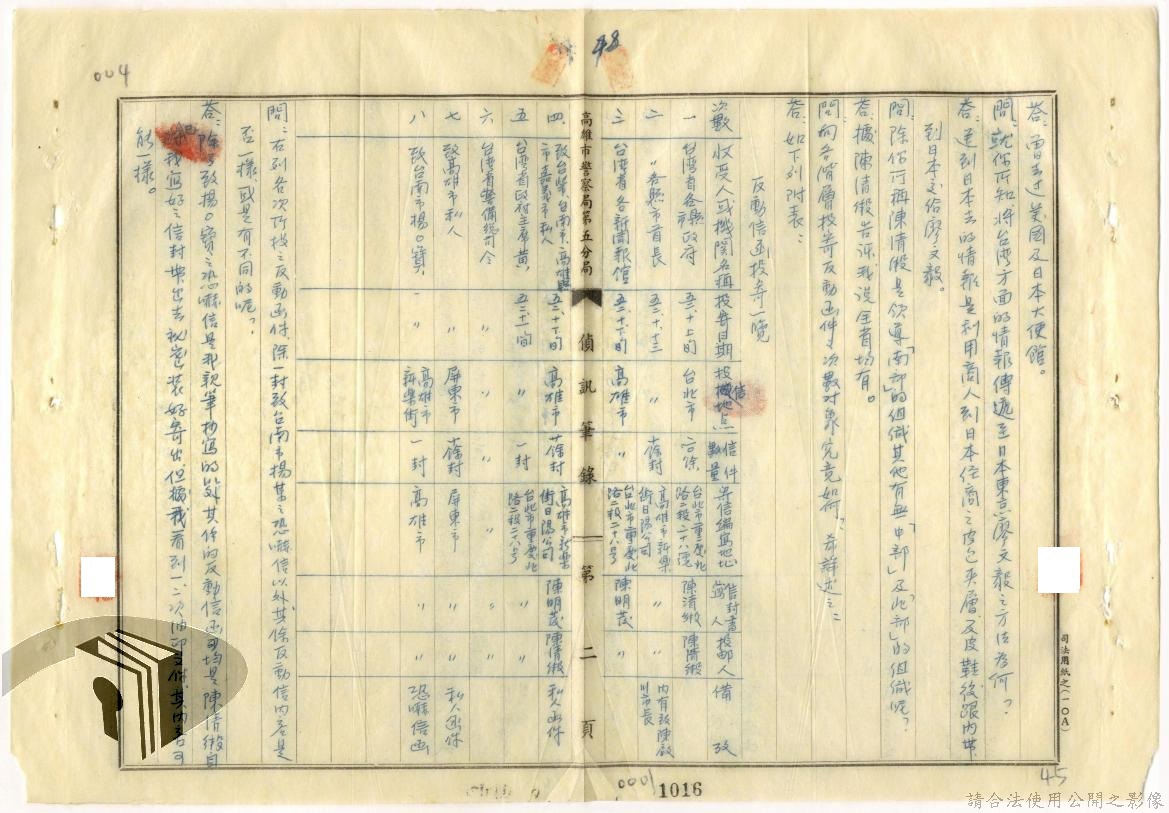 004
48
答：曾去过美國及日本大使館。
問：就你所知將台湾方面的情報傳遞至日本東京廖文毅之方法為何？
答：送到日本去的情報是利用商人到日本徑商之皮包夹層及皮鞋後跟内帶
到日本交給廖文毅。
問：除你所再陳清緞是领導「南部」的組織其他有無「中部」及「北部」的組織呢？
答：據陳清緞告訴我說全省均有。
問：向各階層投寄反動函件之次數对象究竟如何？希詳述之：
答：如下列附表：
反動信函投寄一覽
次數 收受人或機関名稱 投寄日期 投信地点 信件數量 寄信編寫地址 信封書寫人 投邮人 備攷
一 台湾省各縣市政府 五一、十、上旬 台北市 台北市重慶北路二段二十八号 陳清緞 陳清緞
二 〃各縣市首長 〃 十餘封 高雄市新樂街日陽公司 〃 〃 内有致陳啟川市長
三 台湾省各新聞報館 五一、十、下旬 高雄市 〃 台北市重慶北路二段二十八号 陳明茂 〃
高雄市警察局第五分局 偵訊筆錄 第二頁
四 高雄市 十餘封 高雄市新樂街日陽公司 陳明茂 陳清緞 私人函件
五 台湾省政府主席黄 〃 一封 台北市重慶北路二段二十八号 〃 〃
六 台湾省警備總司令 〃 〃 〃 〃 〃 〃
七 致高雄市私人 〃 屏東市 十餘封 屏東市 〃 〃 私人函件
八 致台南市楊○寶 〃 高雄市新樂街 一封 高雄市 〃 〃 恐嚇信函
問：右列各次所投之反動函件，除一封致台南市楊某之恐嚇信以外其餘反動信内容是
否一樣，或是有不同的呢？
答：除了致楊○寶之恐嚇信是我親筆抄寫的以外其你的反動信函均是陳清緞自
我寫好之信封帶出去秘密裝好寄出，但據我看到一、二次油印文件其内容可
能一樣。
司法用紙之(一〇A)
45
0001
1016
請合法使用公開之影像